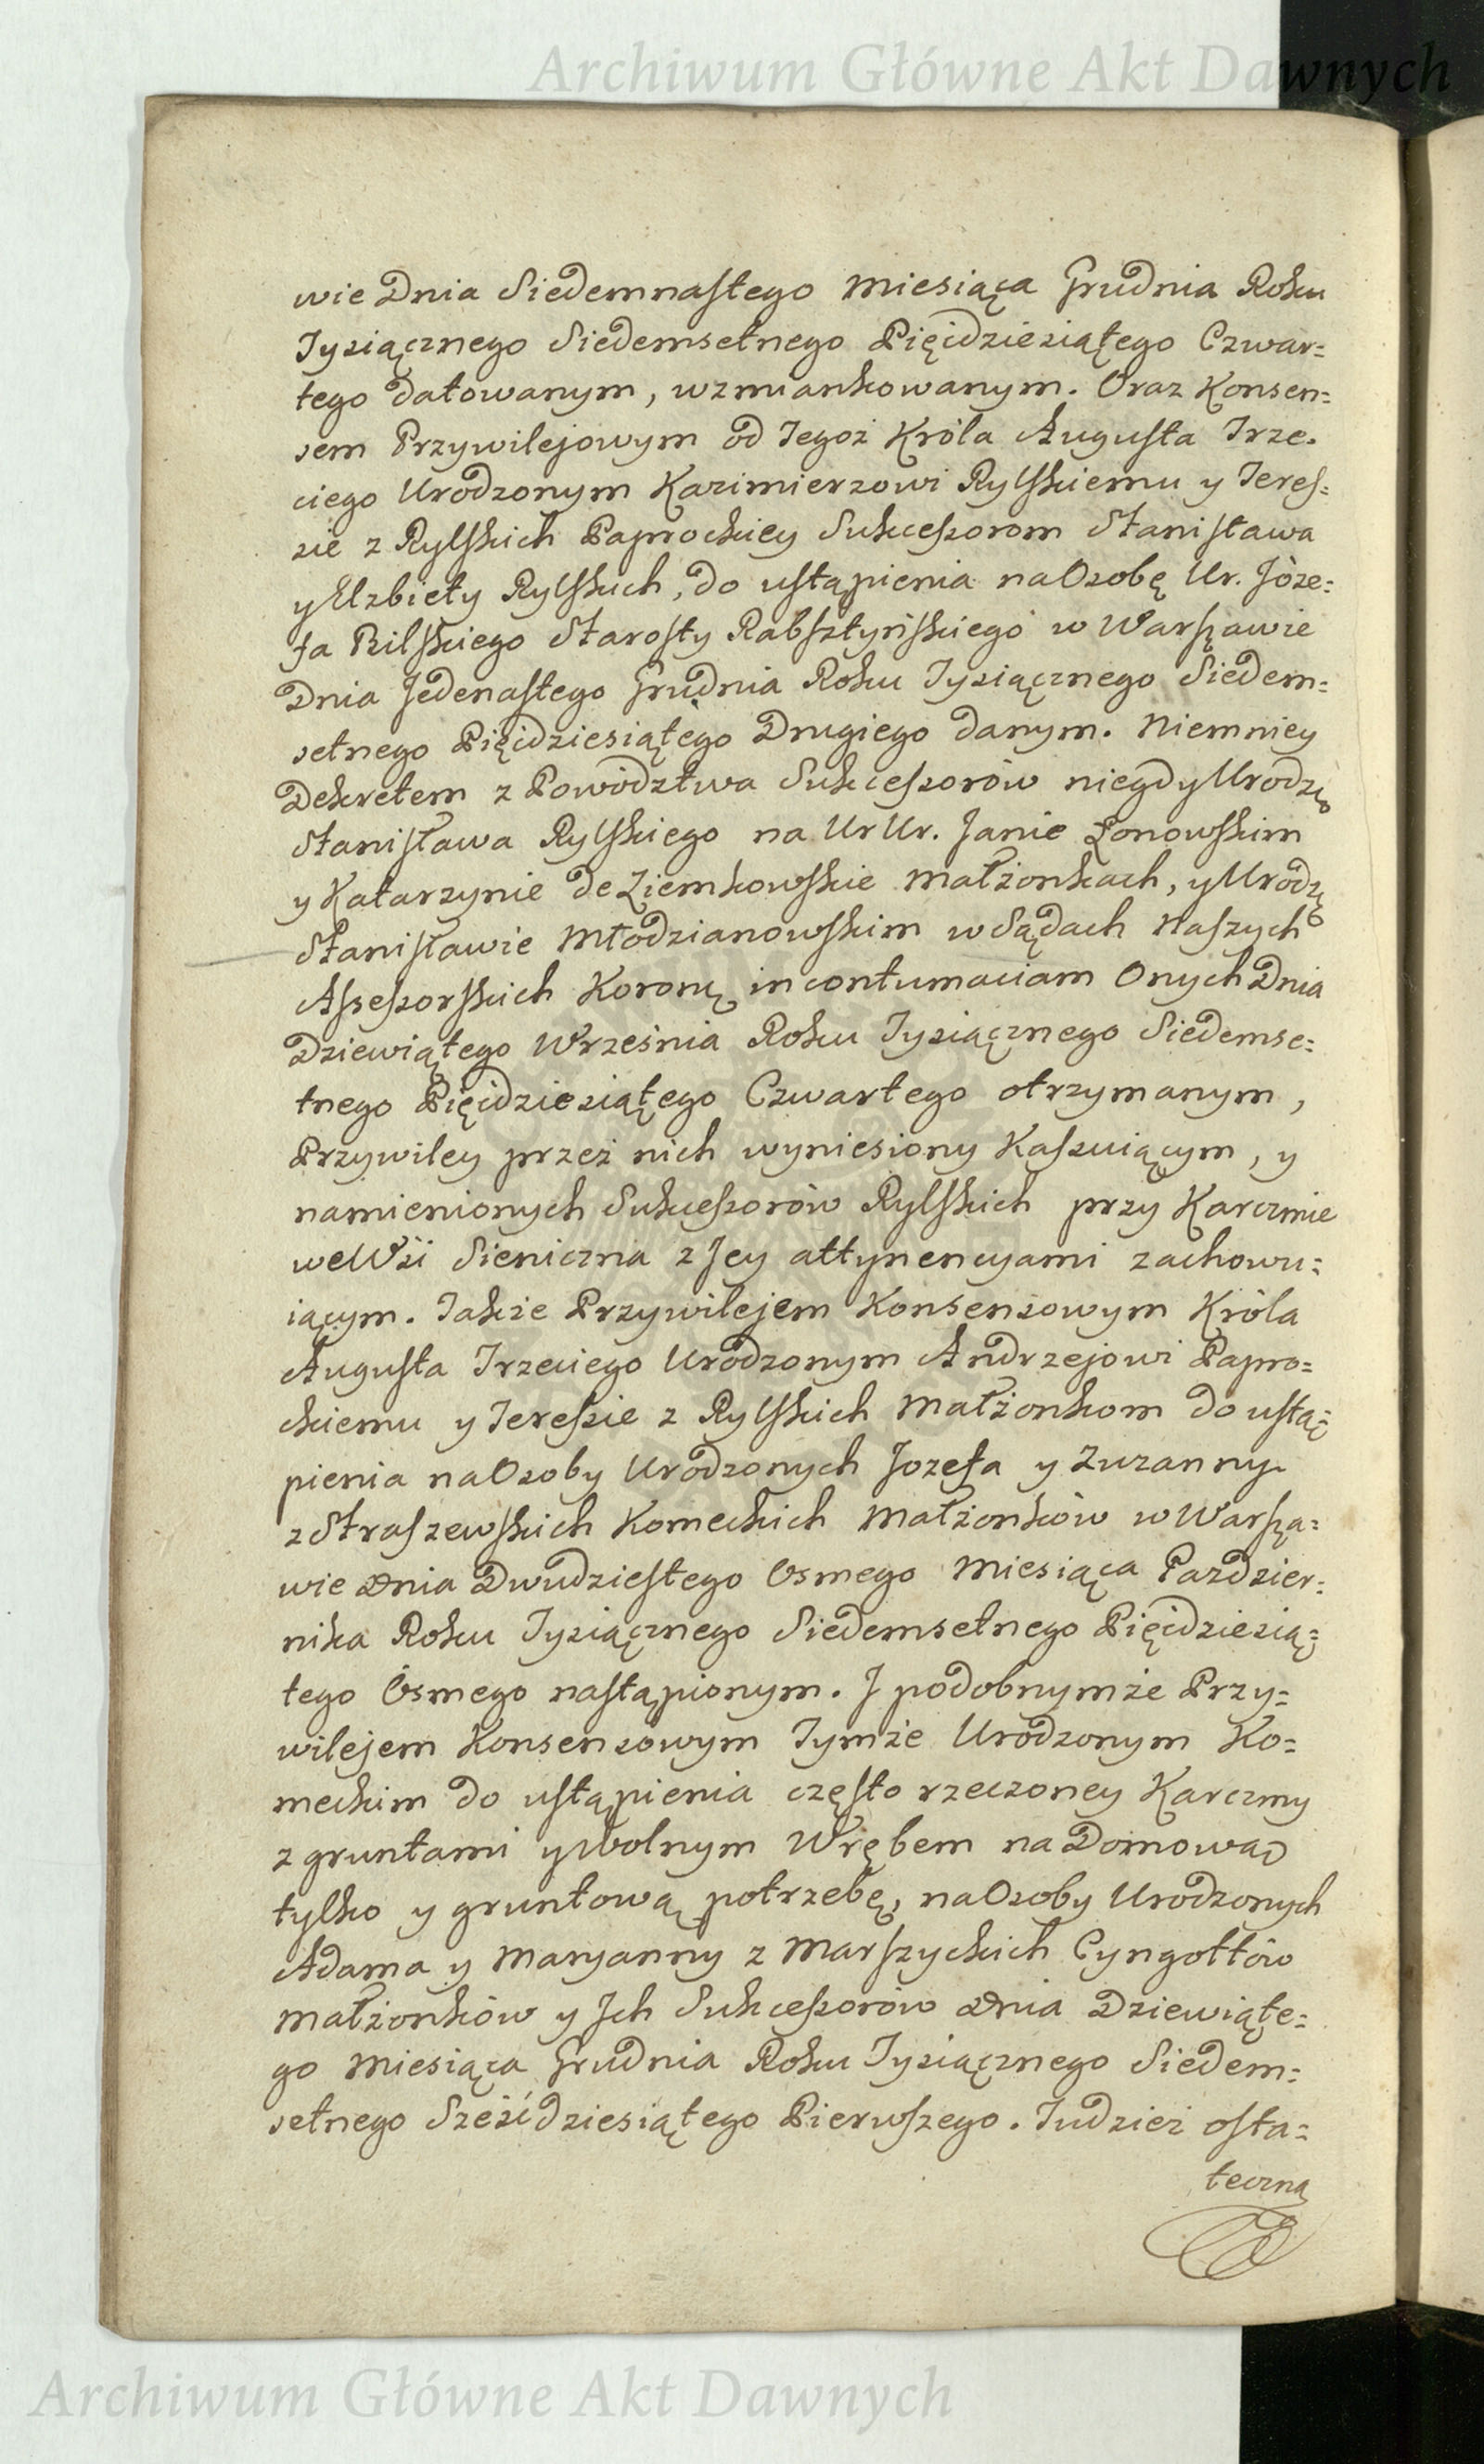 Archiwum Główne Akt Dawnych
wie Dnia Siedemnastego Miesiąca Grudnia Roku
Tysiącznego Siedemsetnego Pięćdziesiątego Czwar=
tego datowanym, wzmiankowanym. Oraz Konsen=
sem Przywilejowym od Tegoż Króla Augusta Trze=
ciego Urodzonym Kazimierzowi Rylskiemu y Teres=
sie z Rylskich Paprockiey Sukcessorom Stanisława
y Elzbiety Rylskich, do ustąpienia na Osobę Ur. Józe=
fa Bilskiego Starosty Rabsztyńskiego w Warszawie
Dnia Jedenastego Grudnia Roku Tysiącznego Siedem=
setnego Pięćdziesiątego Drugiego danym. Niemniey
Dekretem z Powództwa Sukcessorów niegdy Urodz:
Stanisława Rylskiego na Ur Ur. Janie Łonowskim
y Katarzynie de Ziemkowskie Małżonkach, y Urodz:
Stanisławie Młodzianowskim w Sądach Naszych
Assessorskich Koronn: in contumaciam Onych Dnia
Dziewiątego Września Roku Tysiącznego Siedemse=
tnego Pięćdziesiątego Czwartego otrzymanym,
Przywiley przez nich wyniesiony Kassuiącym, y
namienionych Sukcessorów Rylskich przy Karczmie
we Wsi Sieniczna z Jey attynencyami zachowu=
iącym. Takze Przywilejem Konsensowym Króla
Augusta Trzeciego Urodzonym Andrzejowi Papro=
ckiemu y Teressie z Rylskich Małżonkom do ustą=
pienia na Osoby Urodzonych Jozefa y Zuzanny
z Straszewskich Komeckich Małżonków w Warsza=
wie Dnia Dwudziestego Osmego Miesiąca Pazdzier=
nika Roku Tysiącznego Siedemsetnego Pięćdziesią=
tego Osmego nastąpionym. J podobnymże Przy=
wilejem Konsensowym Tymże Urodzonym Ko=
meckim do ustąpienia często rzeczoney Karczmy
z gruntami y wolnym Wrębem na Domową
tylko y gruntową potrzebę, na Osoby Urodzonych
Adama y Maryanny z Marszyckich Cyngottów
Małżonków y Jch Sukcessorów Dnia Dziewiąte=
go Miesiąca Grudnia Roku Tysiącznego Siedem=
setnego Sześćdziesiątego Pierwszego. Tudzież osta=
teczną
Archiwum Główne Akt Dawnych